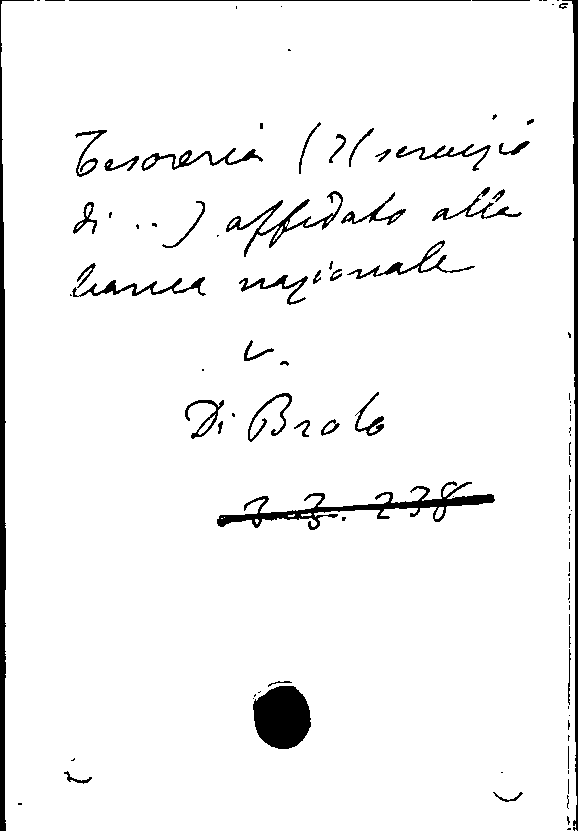 Tesoreria (Il servizio
di ..) affidato alla
banca nazionale
v.
Di Brolo
3 3. 238